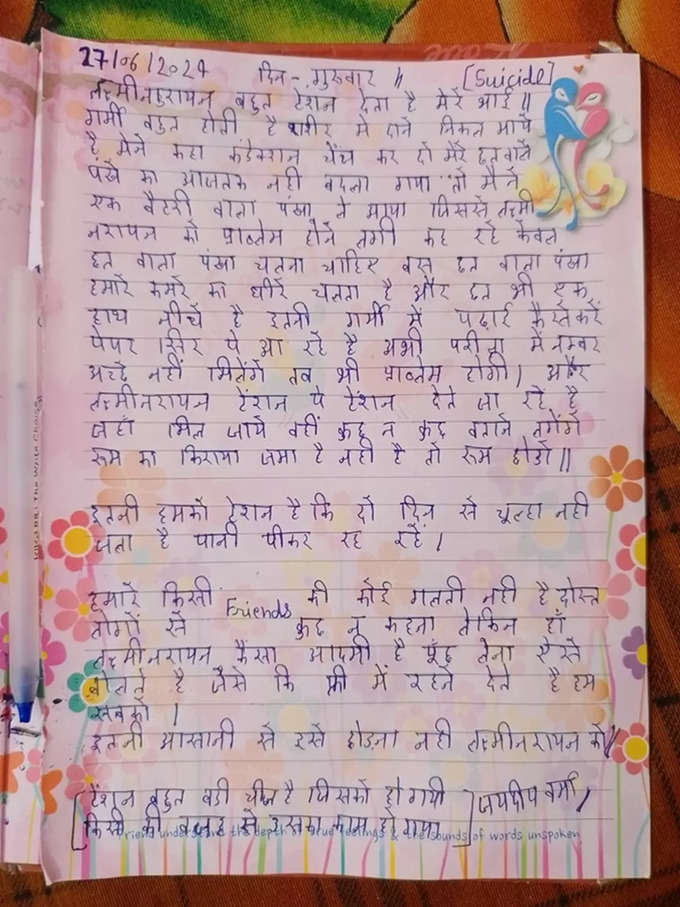 27/06/2024 दिन - गुरुवार // [Suicide]
लक्ष्मीनारायन बहुत टेंशन देता है मेरे भाई //
गर्मी बहुत होती है शरीर मे दाने निकल आये
है मेने कहा कंडेक्शन चेंच कर दो मेरे छत वाले
पंखे का आजतक नही बदला गया तो मैने
एक बैटरी वाला पंखा ले आया जिससे लक्ष्मी
नरायन को प्राब्लेम होने लगी कह रहे केवल
छत वाला पंखा चलना चाहिए बस छत वाला पंखा
हमारे कमरे का धीरे चलता है और छत भी एक
हाथ नीचे है इतनी गर्मी में पढाई कैसे करें
पेपर सिर पे आ रहे है अभी परीक्षा में नम्बर
अच्छे नहीं मिलेंगे तब भी प्राब्लेम होगी। और
लक्ष्मीनरायन टेंशन पे टेंशन देते जा रहे है
जहाँ मिल जाये वहीं कुछ न कुछ बताने लगेंगे
रूम का किराया जमा है नही है तो रूम छोडो //
इतनी हमको टेंशन है कि दो दिन से चूल्हा नही
जला है पानी पीकर रह रहें।
हमारे किसी Friends की कोई गलती नही है दोस्त
लोगों से कुछ न कहना लेकिन हाँ
लक्ष्मीनरायन कैसा आदमी है पूँछ लेना ऐसे
बोलते है जैसे कि फ्री में रहने देते है हम
सबको ।
इतनी आसानी से इसे छोडना नही लक्ष्मीनरायन को //
[टेंशन बहुत बडी चीज है जिसको हो गयी] जयदीप वर्मा /
[किसी की वजह से उसका काम हो गया]
the depth of true feelings & the sounds of words unspoken